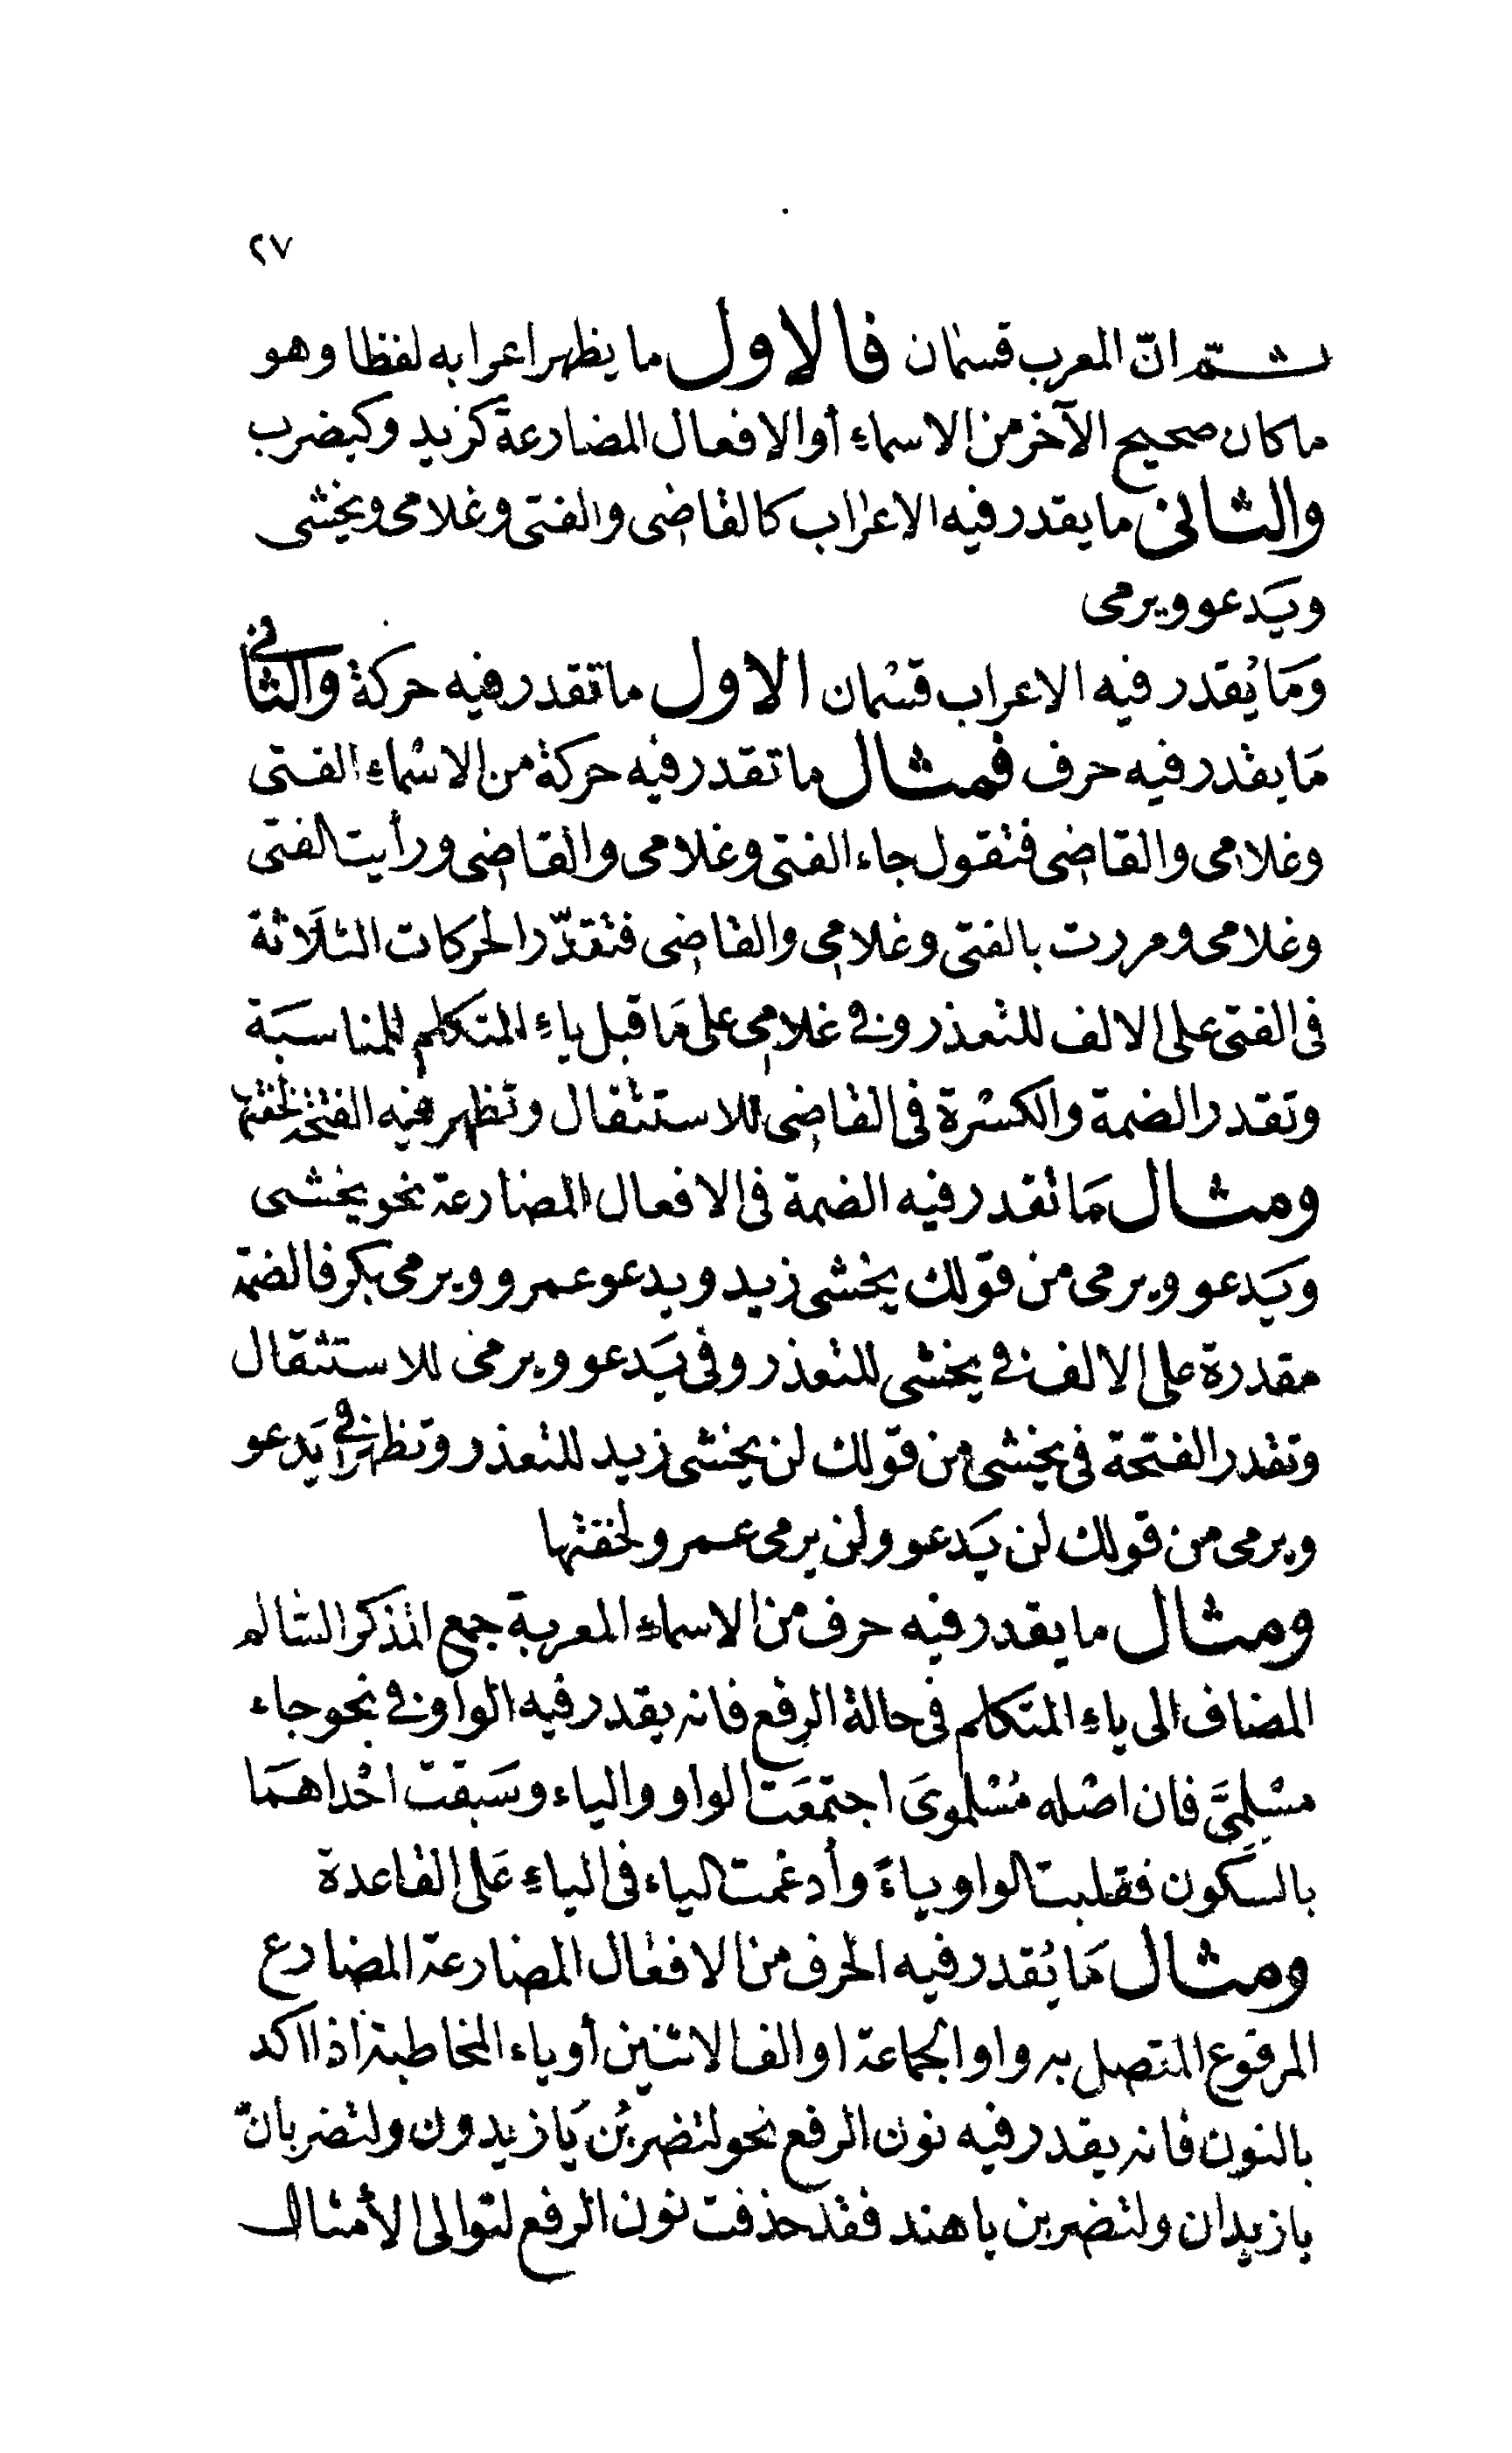 ٢٧
ثم انّ المعرب قسمان فالاول ما يظهر اعرابه لفظا وهو
ما كان صحيح الآخر من الاسماء أو الافعال المضارعة كزيد وكيضرب
والثانى ما يقدر فيه الاعراب كالقاضى والفتى وغلامى ويخشى
ويَدعو ويرمى
وَمَا يُقدر فيه الاعراب قسْمان الاول ما تقدر فيه حركة والثانى
مَا يقدر فيه حرف فمثال ما تقدر فيه حركة من الاسْماء الفتى
وغلامى والقاضى فتقول جاء الفتى وغلامى والقاضى ورأيت الفتى
وغلامى ومررت بالفتى وغلامى والقاضى فتقدّر الحركات الثلَاثة
فى الفتى على الالف للتعذر وفى غلامى على مَا قبل ياء المتكلم للمناسبَة
وتقدر الضمة والكسْرة فى القاضى للاستثقال وتظهر فيه الفتحة لخفتها
ومثال مَا تقدر فيه الضمة فى الافعال المضارعة نحو يخشى
ويَدعو ويرمى من قولك يخشى زيد ويدعو عمرو ويرمى بكر فالضمة
مقدرة على الالف فى يخشى للتعذر وفى يَدعو ويرمى للاستثقال
وتقدر الفتحة فى يخشى من قولك لن يخشى زيد للتعذر وتظهر فى يَدعو
ويرمى من قولك لن يَدعو ولن يرمى عمرو لخفتها
ومثال ما يقدر فيه حرف من الاسماء المعربة جمع المذكر السالم
المضاف الى ياء المتكلم فى حالة الرفع فانه يقدر فيه الواو فى نحو جاء
مسْلِمِىَّ فان اصْله مُسْلموىَ اجتمعَت الواو والياء وسَبقت احْداهمَا
بالسّكون فقلبت الواو ياءً وأدغمت الياء فى الياءِ عَلى القاعدة
ومثال مَا يُقدر فيه الحرف من الافعال المضارعة المضارع
المرفوع المتصل به واو الجماعة او الف الاثنين أو ياء المخاطبة اذا اكد
بالنون فانه يقدر فيه نون الرفع نحو لتضربُن يَا زيدون ولتضربانّ
يا زيدان ولتضربن يا هند فقد حذفت نون الرفع لتوالى الأمثال